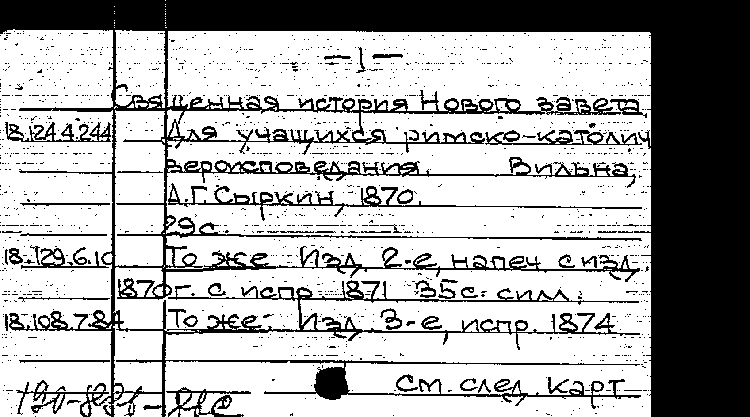 — 1 —
Священная история Нового завета
18.124.4.244 Для учащихся римско-католич
вероисповедания. Вильна,
А.Г. Сыркин, 1870.
29 с.
18.129.6.10 То же Изд. 2-е, напеч с изд.
1870 г. с испр. 1871 35 с. с илл;
18.108.7.84 То же: Изд. 3-е, испр. 1874
См. след. карт